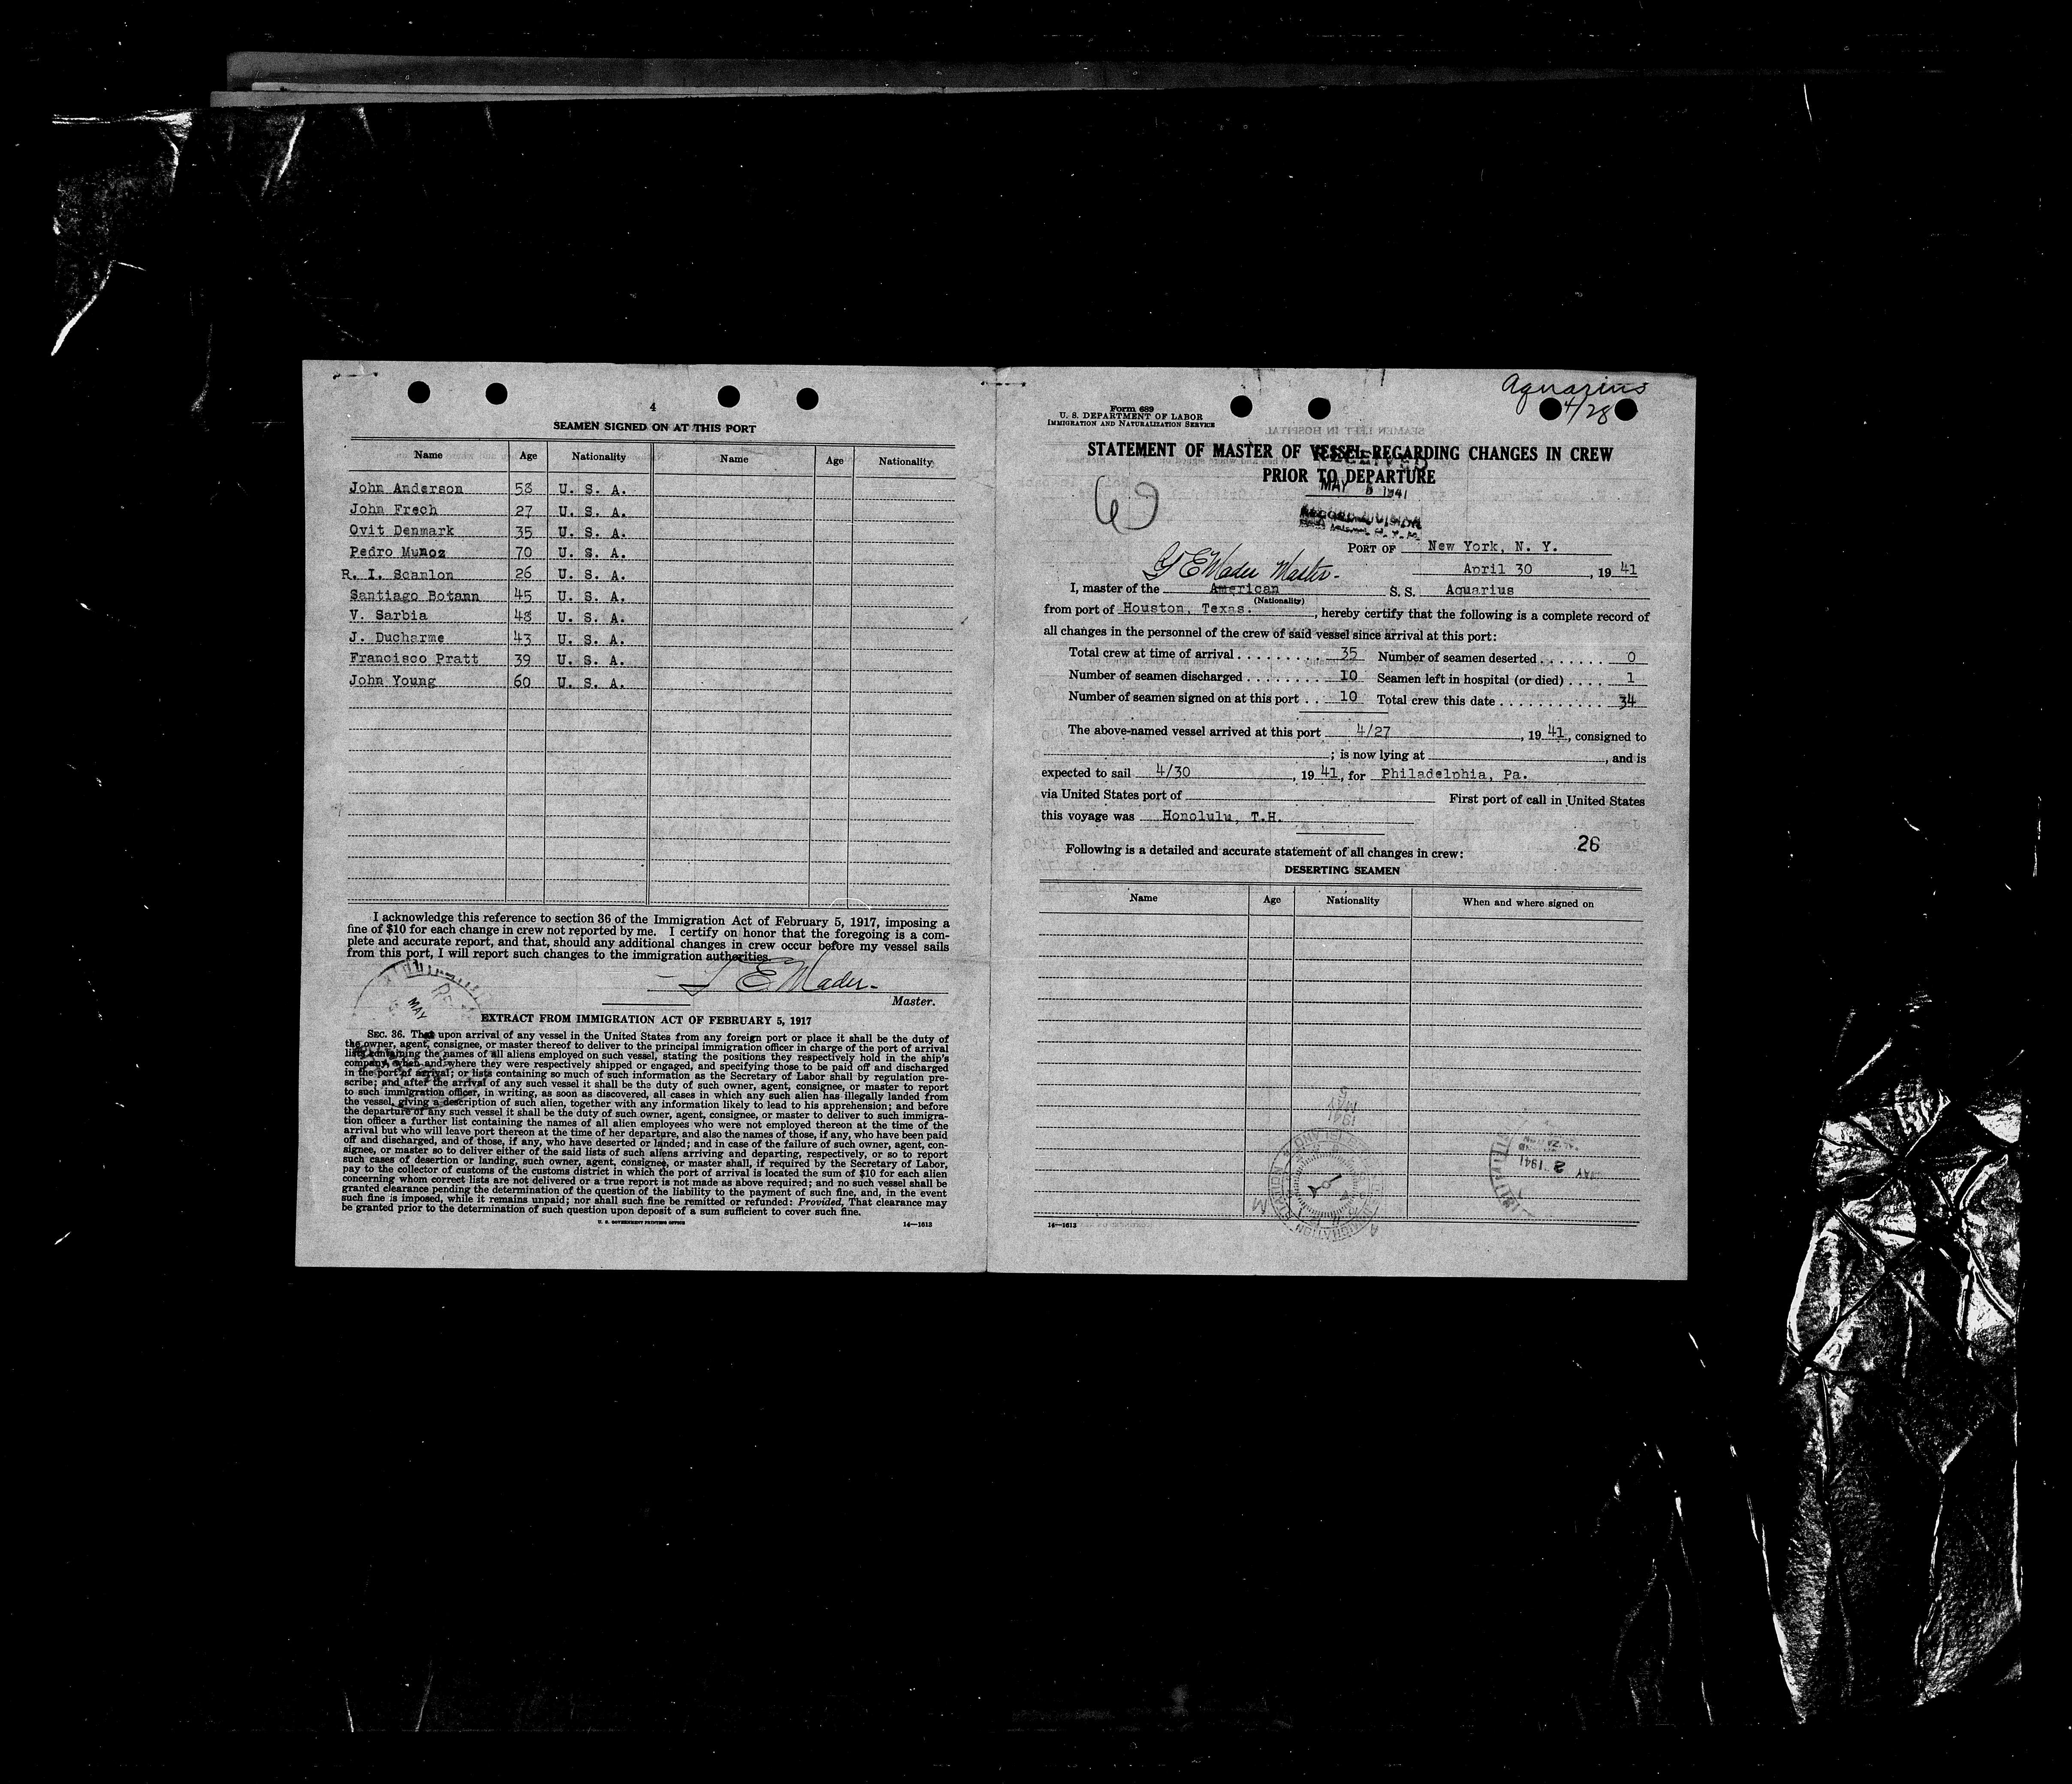 4
SEAMEN SIGNED ON AT THIS PORT
Name Age Nationality Name Age Nationality
John Anderson 58 U. S. A.
John Frech 27 U. S. A.
Ovit Denmark 35 U. S. A.
Pedro Munoz 70 U. S. A.
R. I. Scanlon 26 U. S. A.
Santiago Botann 45 U. S. A.
V. Sarbia 48 U. S. A.
J. Ducharme 43 U. S. A.
Francisco Pratt 39 U. S. A.
John Young 60 U. S. A.
I acknowledge this reference to section 36 of the Immigration Act of February 5, 1917, imposing a
fine of $10 for each change in crew not reported by me. I certify on honor that the foregoing is a com-
plete and accurate report, and that, should any additional changes in crew occur before my vessel sails
from this port, I will report such changes to the immigration authorities.
MAY
E Mader
Master.
EXTRACT FROM IMMIGRATION ACT OF FEBRUARY 5, 1917
SEC. 36. That upon arrival of any vessel in the United States from any foreign port or place it shall be the duty of
the owner, agent, consignee, or master thereof to deliver to the principal immigration officer in charge of the port of arrival
lists containing the names of all aliens employed on such vessel, stating the positions they respectively hold in the ship's
company, when and where they were respectively shipped or engaged, and specifying those to be paid off and discharged
in the port of arrival; or lists containing so much of such information as the Secretary of Labor shall by regulation pre-
scribe; and after the arrival of any such vessel it shall be the duty of such owner, agent, consignee, or master to report
to such immigration officer, in writing, as soon as discovered, all cases in which any such alien has illegally landed from
the vessel, giving a description of such alien, together with any information likely to lead to his apprehension; and before
the departure of any such vessel it shall be the duty of such owner, agent, consignee, or master to deliver to such immigra-
tion officer a further list containing the names of all alien employees who were not employed thereon at the time of the
arrival but who will leave port thereon at the time of her departure, and also the names of those, if any, who have been paid
off and discharged, and of those, if any, who have deserted or landed; and in case of the failure of such owner, agent, con-
signee, or master so to deliver either of the said lists of such aliens arriving and departing, respectively, or so to report
such cases of desertion or landing, such owner, agent, consignee, or master shall, if required by the Secretary of Labor,
pay to the collector of customs of the customs district in which the port of arrival is located the sum of $10 for each alien
concerning whom correct lists are not delivered or a true report is not made as above required; and no such vessel shall be
granted clearance pending the determination of the question of the liability to the payment of such fine, and, in the event
such fine is imposed, while it remains unpaid; nor shall such fine be remitted or refunded: Provided, That clearance may
be granted prior to the determination of such question upon deposit of a sum sufficient to cover such fine.
U. S. GOVERNMENT PRINTING OFFICE 14—1613
Aquarius
4/28
Form 689
U. S. DEPARTMENT OF LABOR
IMMIGRATION AND NATURALIZATION SERVICE
STATEMENT OF MASTER OF VESSEL REGARDING CHANGES IN CREW
PRIOR TO DEPARTURE
RECEIVED
MAY 5 1941
PORT OF New York, N. Y.
G E Mader Master. April 30, 19 41
I, master of the American S. S. Aquarius
(Nationality)
from port of Houston, Texas., hereby certify that the following is a complete record of
all changes in the personnel of the crew of said vessel since arrival at this port:
Total crew at time of arrival 35 Number of seamen deserted 0
Number of seamen discharged 10 Seamen left in hospital (or died) 1
Number of seamen signed on at this port 10 Total crew this date 34
The above-named vessel arrived at this port 4/27, 19 41, consigned to
; is now lying at , and is
expected to sail 4/30, 19 41, for Philadelphia, Pa.
via United States port of First port of call in United States
this voyage was Honolulu, T.H.
26
Following is a detailed and accurate statement of all changes in crew:
DESERTING SEAMEN
Name Age Nationality When and where signed on
1941
MAY
MAY 2 1941
14—1613